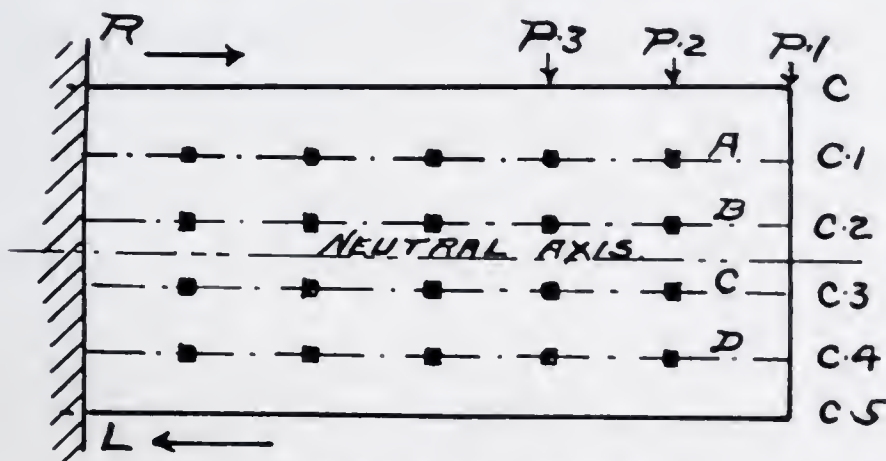 R P.3 P.2 P.1
C
A C.1
B C.2
NEUTRAL AXIS.
C C.3
D C.4
L C5